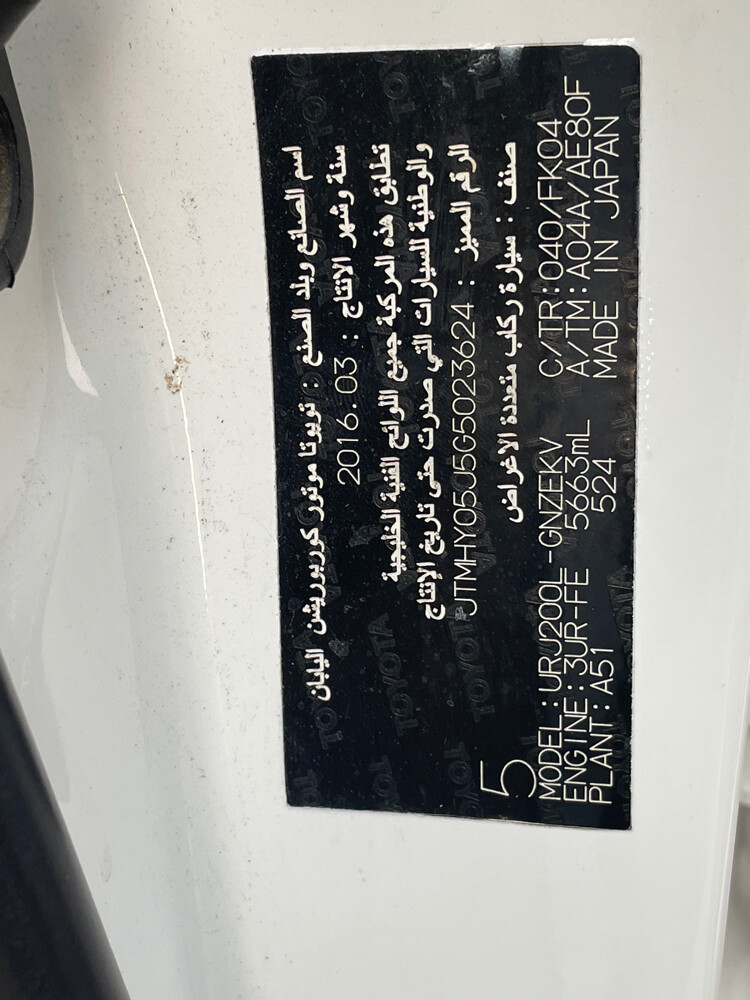 اسم الصانع وبلد الصنع : تويوتا موتور كوربوريشن اليابان
سنة وشهر الانتاج : 2016.03
تطابق هذه المركبة جميع اللوائح الفنية الخليجية
والوطنية للسيارات التي صدرت حتى تاريخ الإنتاج
الرقم المميز : JTMHY05J5G5023624
صنف : سيارة ركاب متعددة الاغراض
5
MODEL:URJ200L-GNZEKV C/TR:040/FK04
ENGINE:3UR-FE 5663mL A/TM:A04A/AE80F
PLANT:A51 524 MADE IN JAPAN